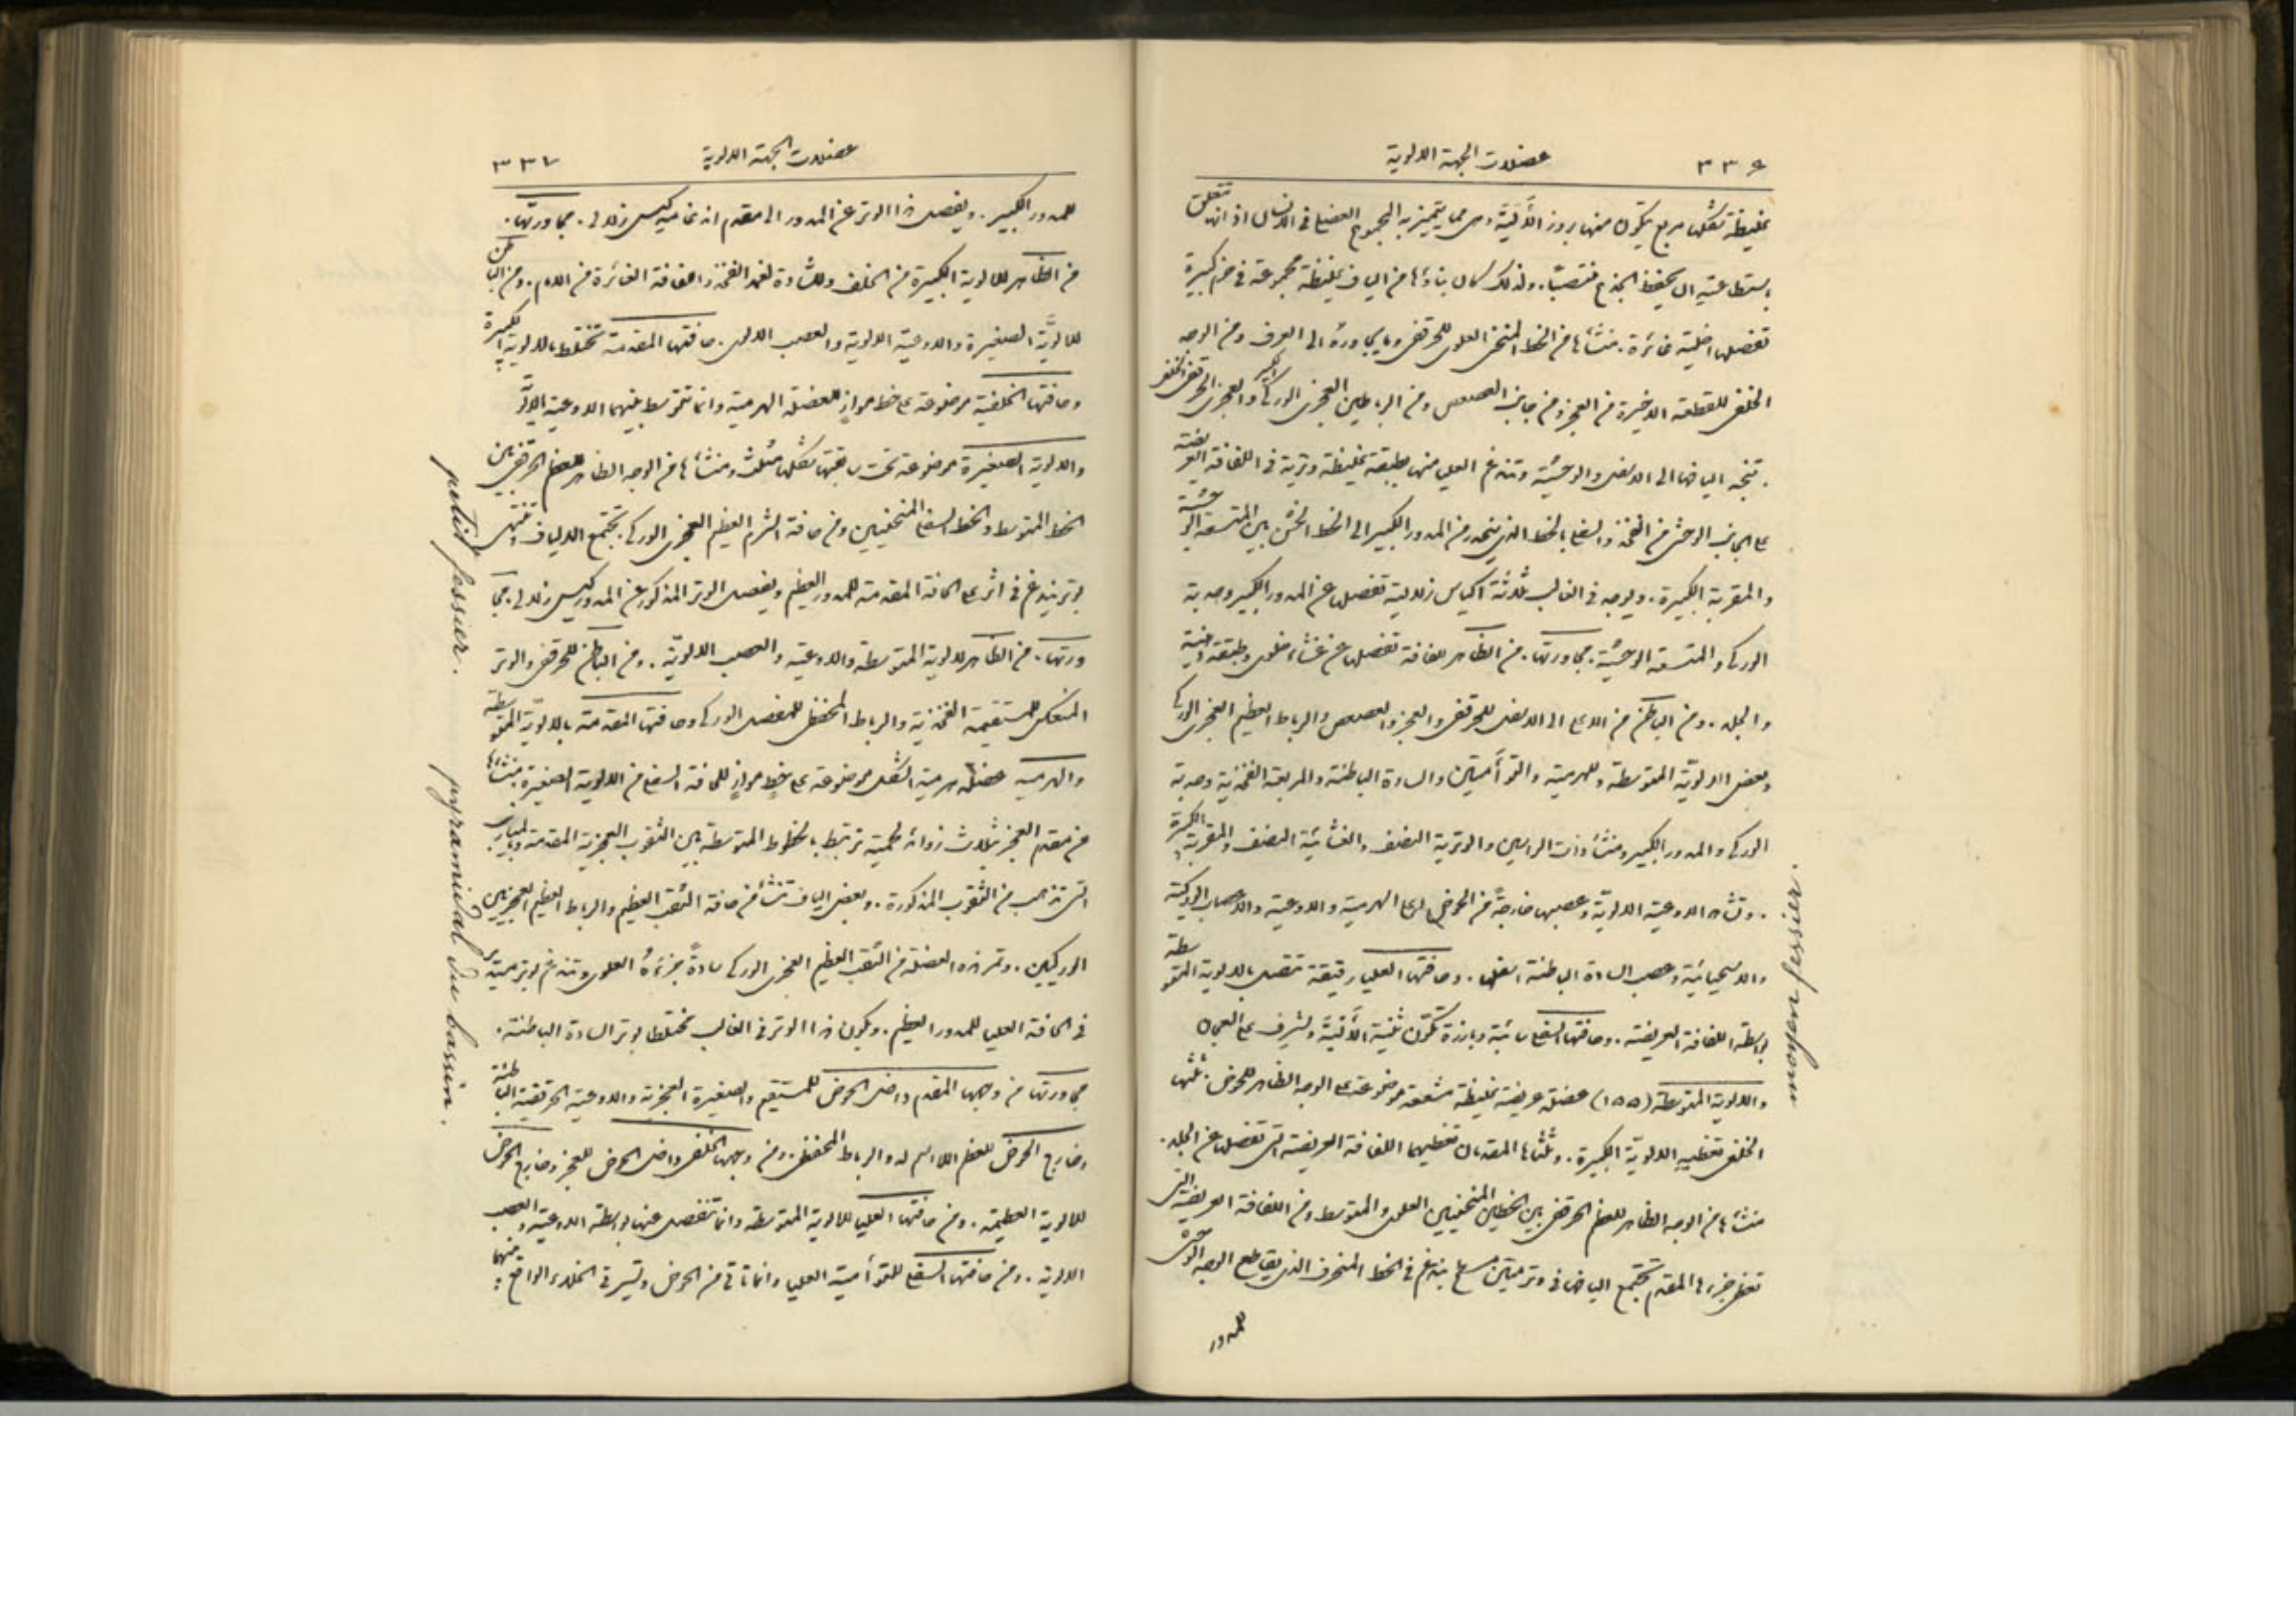 ٣٣٦ عضلات الجهة الالوية
غليظة تشكلها مربع يتكون منها بروز الألَيَة وهى مما يتميز به المجموع العضلى فى الانسان اذ انه تتعلق
باستطاعته ان يحفظ الجذع منتصبًا. ولذلك كان بناؤها من الياف غليظة مجموعة فى حزم كبيرة
تفصلها اخلية غائرة. منشأها من الخط المنحنى العلوى للحرقفى وما يجاوره الى العرف ومن الوجه
الخلفى للقطعة الاخيرة من العجز ومن جانب العصعص ومن الرباطين العجزى الوركى الكبير والعجزى الحرقفى الخلفى
. تتجه اليافها الى الاسفل والوحشية وتندغم العليا منها بطبقة غليظة وترية فى اللفافة العريضة
على الجانب الوحشى من الفخذ والسفلى بالخط الذى ينحدر من المدور الكبير الى الخط الخشن بين المتسعة الوحشية
والمقربة الكبيرة. ويوجد فى الغالب ثلاثة اكياس زلالية تفصلها عن المدور الكبير وحدبة
الورك والمتسعة الوحشية. مجاورتها. من الظاهر لفافة تفصلها عن غشاء خلوى وطبقة دهنية
والجلد. ومن الباطن من الاعلى الى الاسفل للحرقفى والعجز والعصعص والرباط العظيم العجزى الوركى
وبعض الالويّة المتوسطة وللهرمية والتوأميتين والسادة الباطنة والمربعة الفخذية وحدبة
الورك والمدور الكبير ومنشأ ذات الراسين والوترية النصف والغشائية النصف والمقربة الكبيرة
. وتشاهد الاوعية الالويّة وعصبها خارجةً من الحوض اعلى الهرمية والاوعية والاعصاب الوركية
والاستحيائية وعصب السادة الباطنة اسفلها. وحافتها العليا رقيقة تتصل بالالوية المتوسطة
بواسطة اللفافة العريضة. وحافتها السفلى سائبة وبارزة تكوّن ثنية الألَيَة وتشرف على العجان
والالوية المتوسطة (١٥٥) عضلة عريضة غليظة مشععة موضوعة على الوجه الظاهر للحوض. ثلثها
الخلفى تغطيه الالويّة الكبيرة. وثلثاها المقدمان تغطيهما اللفافة العريضة التى تفصلها عن الجلد.
منشأها من الوجه الظاهر للعظم الحرقفى بين الخطين المنحنيين العلوى والمتوسط ومن اللفافة العريضة التى
تغطى جزءها المقدم تجتمع اليافها فى وتر متين مسطح يندغم فى الخط المنحرف الذى يقاطع الوجه الوحشى
للمدور
moyen fessier.
عضلات الجهة الالوية ٣٣٧
للمدور الكبير. ويفصل هذا الوتر عن المدور الى مقدم اندغاميه كيس زلالى. مجاورتها.
من الظاهر للالوية الكبيرة من الخلف وللشادة لغمد الفخذ واللفافة الغائرة من الامام. ومن الباطن
للالويَّة الصغيرة والاوعية الالوية والعصب الالوى. حافتها المقدمة تختلط بالالوية الصغيرة
وحافتها الخلفية موضوعة على خط موازٍ للعضلة الهرمية وانما تتوسط بينهما الاوعية الالويَّة
والالوية الصغيرة موضوعة تحت سابقتها تشكلها مثلث ومنشأها من الوجه الظاهر للعظم الحرقفى بين
الخط المتوسط والخط السفلى المنحنيين ومن حافة الشرم العظيم العجزى الوركى. تجتمع الالياف وتنتهى
بوتر يندغم فى اثر على الحافة المقدمة للمدور العظيم ويفصل الوتر المذكور عن المدور كيس زلالى. مجا
ورتها. من الظاهر للالوية المتوسطة والاوعية والعصب الالويّة. ومن الباطن للحرقفى والوتر
المنعكس للمستقيمة الفخذية والرباط المحفظى للمفصل الوركى وحافتها المقدمة بالالويّة المتوسطة
والهرمية عضلة هرمية الشكل موضوعة على خطٍ موازٍ للحافة السفلى من الالوية الصغيرة. منشأها
من مقدم العجز بثلاث زوائد لحمية ترتبط بالخطوط المتوسطة بين الثقوب العجزية المقدمة وبالميازيب
التى تذهب من الثقوب المذكورة. وبعض الياف تنشأ من حافة الثقب العظيم والرباط العظيم العجزيين
الوركيين. وتمر هذه العضلة من الثقب العظيم العجزى الوركى سادةً جزءهُ العلوى وتندغم بوتر مبيّن
فى الحافة العليا للمدور العظيم. ويكون هذا الوتر فى الغالب مختلطا بوتر السادة الباطنة.
مجاورتها من وجهها المقدم داخل الحوض للمستقيم والضفيرة العجزية والاوعية الحرقفية الباطنة
وخارج الحوض للعظم اللا اسم له والرباط المحفظى. ومن وجهها الخلفى داخل الحوض للعجز وخارج الحوض
للالوية العظيمة. ومن حافتها العليا للالوية المتوسطة وانما تنفصل عنها بواسطة الاوعية والعصب
الالوية. ومن حافتها السفلى للتوأمية العليا وانما تأتى من الحوض وتسير فى الخلاء الواقع بينهما
petit fessier.
pyramidal du bassin.